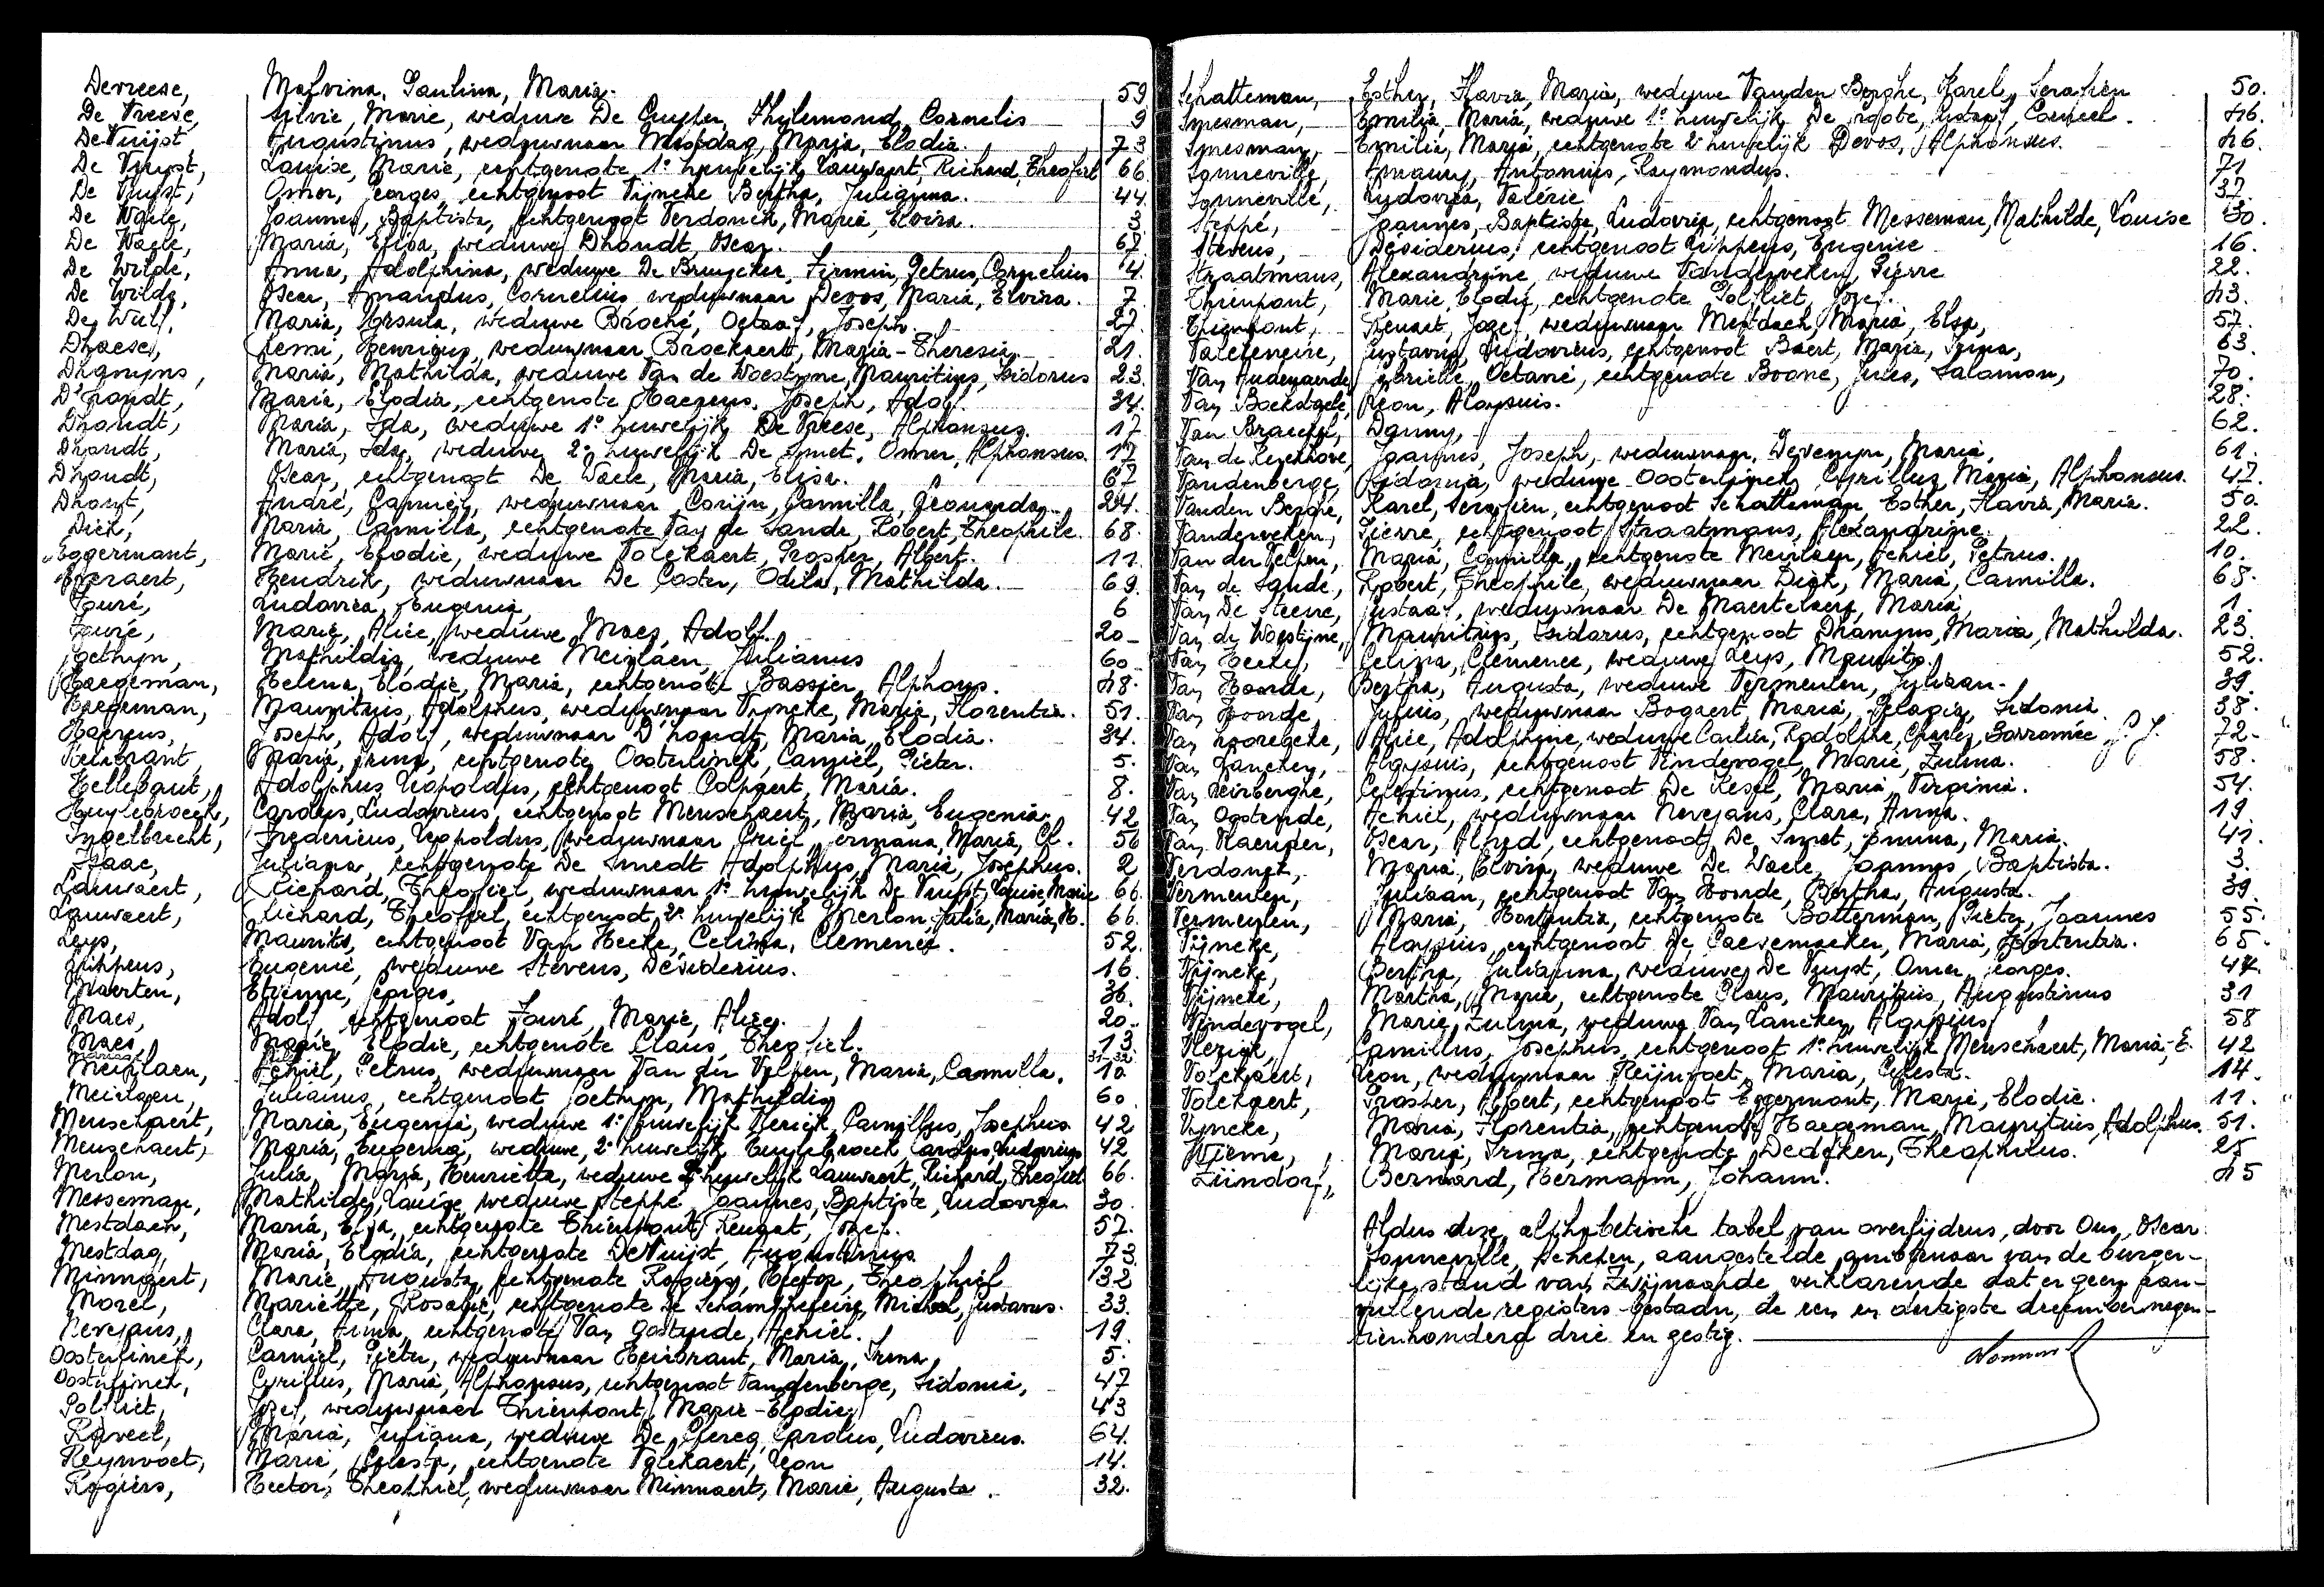 Devreese, Malvina, Paulina, Maria. 59
De Vreese, Silvie, Marie, weduwe De Cuyper, Phylemond, Cornelis 9
De Vuijst, Augustinus, weduwnaar Mestdag, Maria, Elodia. 73
De Vuyst, Louise, Marie, echtgenote 1° huwelijk Lauwaert, Richard, Theofiel 66
De Vuyst, Omer, Georges, echtgenoot Vijncke Bertha, Julianna. 44
De Waele, Joannes, Baptista, echtgenoot Verdonck, Maria, Elvira. 3
De Waele, Maria, Elisa, weduwe Dhondt, Oscar. 67
De Wilde, Anna, Adolphina, weduwe De Bruycker, Firmin, Petrus, Cornelius 4.
De Wilde, Oscar, Amandus, Cornelius weduwnaar Devos, Maria, Elvira. 7.
De Wulf, Maria, Ursula, weduwe Broché, Octaaf, Joseph. 27.
Dhaese, Remi, Henricus, weduwnaar Broekaert, Maria-Theresia. 21.
Dhamyns, Maria, Mathilda, weduwe Van de Woestyne, Mauritius, Isidorus 23.
D'hondt, Maria, Elodia, echtgenote Haezeus, Joseph, Adolf. 34.
Dhondt, Maria, Ida, weduwe 1° huwelijk De Vreese, Alphonsus. 17
Dhondt, Maria, Ida, weduwe 2° huwelijk De Smet, Omer, Alphonsus. 17
Dhondt, Oscar, echtgenoot De Waele, Maria, Elisa. 67
Dhont, André, Camiel, weduwnaar Corijn, Camilla, Leonarda. 24.
Dick, Maria, Camilla, echtgenote Van de Sande, Robert, Theophile. 68.
Eggermont, Marie, Elodie, weduwe Volckaert, Prosper, Albert. 11.
Everaert, Hendrik, weduwnaar De Coster, Odila, Mathilda. 69.
Fouré, Ludovica, Eugenia, 6
Fouré, Marie, Alice, weduwe Maes, Adolf. 20
Goethyn, Mathildis, weduwe Meirlaen, Julianus 60
Haegeman, Helena, Elodie, Maria, echtgenote Bassier, Alphons. 48.
Haegeman, Mauritius, Adolphus, weduwnaar Vyncke, Maria, Florentia. 51.
Joseph, Adolf, weduwnaar D'hondt, Maria, Elodia. 34.
Heirbrant, Maria, Irma, echtgenote Oosterlinck, Camiel, Pieter. 5.
Hellebaut, Adolphus, Leopoldus, echtgenoot Colpaert, Maria. 8.
Huylebroeck, Carolus, Ludovicus, echtgenoot Menschaert, Maria, Eugenia. 42
Ingelbrecht, Fredericus, Leopoldus, weduwnaar Criel, Germana, Maria, Cl. 56
Isaac, Juliana, echtgenote De Smedt Adolphus, Maria, Josephus. 2
Lauwaert, Richard, Theofiel, weduwnaar 1° huwelijk De Vuyst, Louise, Marie 66.
Lauwaert, Richard, Theofiel, echtgenoot, 2° huwelijk Merlon, Julia, Maria, H. 66.
Leys, Maurits, echtgenoot Van Hecke, Celina, Clemence. 52.
Lippens, Eugenie, weduwe Stevens, Désiderius. 16.
Maerten, Etienne, Georges, 36.
Maes, Adolf, echtgenoot Fouré, Marie, Alice. 20.
Maes, Marie, Elodie, echtgenote Claus, Theofiel. 13.
Meirlaen, Achiel, Petrus, weduwnaar Van der Velpen, Maria, Camilla. 10
Meirlaen, Julianus, echtgenoot Goethyn, Mathildis 60
Menschaert, Maria, Eugenia, weduwe 1° huwelijk Vlerick, Camillus, Josephus 42
Menschaert, Maria, Eugenia, weduwe, 2° huwelijk Huylebroeck Carolus, Ludovicus 42
Merlon, Julia, Maria, Henrietta, weduwe 2° huwelijk Lauwaert, Richard, Theofiel 66.
Messeman, Mathilde, Louise, weduwe Steppé, Joannes, Baptiste, Ludovica 30.
Mestdach, Maria, Elsa, echtgenote Thienpont, Renaat, Jozef. 57.
Mestdag, Maria, Elodia, echtgenote De Vuijst, Augustinus 73
Minnaert, Marie, Augusta, echtgenote Rogiers, Hector, Theophiel 32
Morel, Mariette, Rosalie, echtgenote De Schampheleire, Michel, Gustavus. 33.
Nevejans, Clara, Anna, echtgenote Van Oostende, Achiel. 19.
Oosterlinck, Camiel, Pieter, weduwnaar Heirbrant, Maria, Irma, 5.
Oosterlinck, Cyrillus, Maria, Alphonsus, echtgenoot Vandenberge, Sidonia, 47
Polfliet, Jozef, weduwnaar Thienpont, Marie-Elodie, 43
Raveel, Maria, Juliana, weduwe De Clercq, Carolus, Ludovicus. 64.
Reynvoet, Maria, Celesta, echtgenote Volckaert, Leon 14.
Rogiers, Hector, Theophiel, weduwnaar Minnaert, Marie, Augusta. 32.
Schatteman, Esther, Flavia, Maria, weduwe Vanden Berghe, Karel, Serafien 50.
Smesman, Emilia, Maria, weduwe 1° huwelijk De Groote, Gustaaf, Camiel. 46.
Smesman, Emilia, Maria, echtgenote 2° huwelijk Devos, Alphonsus. 46.
Sonneville, Amaury, Antonius, Raymondus. 71
Sonneville, Ludovica, Valérie 37.
Steppé, Joannes, Baptiste, Ludovica, echtgenoot Messeman, Mathilde, Louise 30.
Stevens, Désiderius, echtgenoot Lippens, Eugenie 16.
Straatmans, Alexandrine, weduwe Vanderveken, Pierre 22.
Thienpont, Marie, Elodie, echtgenote Polfliet, Jozef. 43.
Thienpont, Renaat, Jozef, weduwnaar Mestdach, Maria, Elsa, 57.
Valcteneire, Gustavus, Ludovicus, echtgenoot Baert, Maria, Irma, 63.
Van Audenaerde, Gabrielle, Octavie, echtgenote Boone, Jules, Salomon, 70.
Van Bockstaele, Leon, Aloysuis. 28.
Danny, 62.
Van de Kerckhove, Joannes, Joseph, weduwnaar, Devenyn, Maria, 61.
Vandenberge, Sidonia, weduwe Oosterlinck, Cyrillus, Maria, Alphonsus. 47.
Vanden Berghe, Karel, Serafien, echtgenoot Schatteman, Esther, Flavia, Maria. 50.
Vanderveken, Pierre, echtgenoot Straatmans, Alexandrine. 22.
Van der Velpen, Maria, Camilla, echtgenote Meirlaen, Achiel, Petrus. 10.
Van de Sande, Robert, Theophile, weduwnaar Dick, Maria, Camilla. 68.
Van De Steene, Gustaaf, weduwnaar De Maertelaere, Maria, 1.
Van de Woestijne, Mauritius, Isidorus, echtgenoot Dhamyns, Maria, Mathilda. 23.
Van Hecke, Celina, Clemence, weduwe Leys, Maurits. 52.
Van Hoorde, Bertha, Augusta, weduwe Vermeulen, Juliaan. 39
Van Hoorde, Julius, weduwnaar Bogaert, Maria, Pelagia, Sidonia 38.
Van Hooregeke, Alice, Adolphine, weduwe Carlier, Rodolphe, Charles, Borromée 72
Van Lancker, Aloysuis, echtgenoot Vindevogel, Marie, Zulma. 58.
Van Leirberghe, Celestinus, echtgenoot De Kesel, Maria, Virginia. 54.
Van Oostende, Achiel, weduwnaar Nevejans, Clara, Anna. 19.
Van Kaempen, Oscar, Alfred, echtgenoot, De Smet, Emma, Maria. 41.
Verdonck, Maria, Elvira, weduwe De Waele, Joannes, Baptista. 3.
Vermeulen, Juliaan, echtgenoot Van Hoorde, Bertha, Augusta. 39.
Vermeulen, Maria, Hortentia, echtgenote Botterman, Pieter, Joannes 55.
Vijncke, Aloysius, echtgenoot De Caesemaeker, Maria, Hortentia. 65.
Vijncke, Bertha, Julianna, weduwe De Vuyst, Omer, Georges. 44.
Vijncke, Martha, Maria, echtgenote Claus, Mauritius, Augustinus 31
Vindevogel, Marie, Zulma, weduwe Van Lancker, Aloysius 58
Vlerick, Camillus, Josephus, echtgenoot 1° huwelijk Menschaert, Maria-E. 42
Volckaert, Leon, weduwnaar Reijnvoet, Maria, Celesta. 14.
Volckaert, Prosper, Albert, echtgenoot Eggermont, Marie, Elodie. 11.
Vyncke, Maria, Florentia, echtgenote Haegeman, Mauritius, Adolphus. 51.
Wieme, Maria, Irma, echtgenote Dedeken, Theophilus. 25
Zündorf, Bernard, Hermann, Johann. 45
Aldus deze alphabetische tabel van overlijdens, door Ons, Oscar
Sonneville, schepen, aangestelde ambtenaar van de burger-
lijke stand van Zwijnaarde verklarende dat er geen aan-
vullende registers bestaan, de een en dertigste december negen-
tienhonderd drie en zestig.